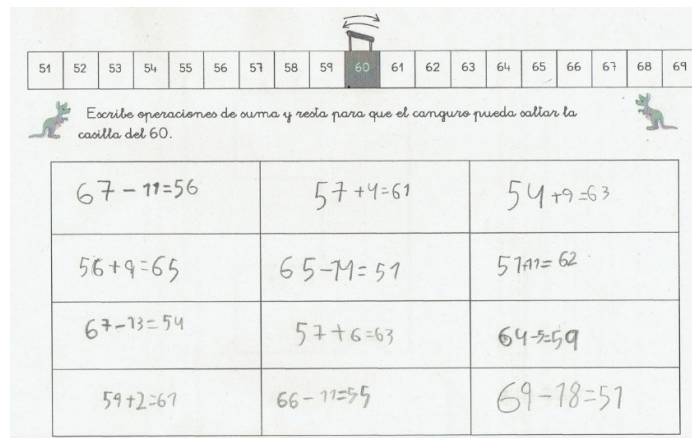 51 52 53 54 55 56 57 58 59 60 61 62 63 64 65 66 67 68 69
Escribe operaciones de suma y resta para que el canguro pueda saltar la
casilla del 60.
67-11=56 57+4=61 54+9=63
56+9=65 65-14=51 51+11=62
67-13=54 57+6=63 64-5=59
59+2=61 66-11=55 69-18=51